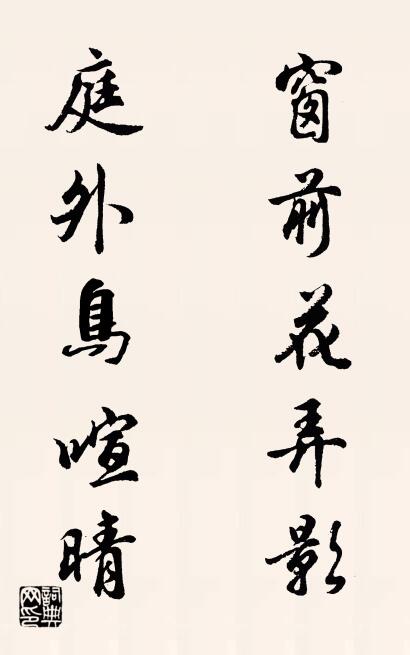 窗前花弄影
庭外鳥喧晴
詞典网印